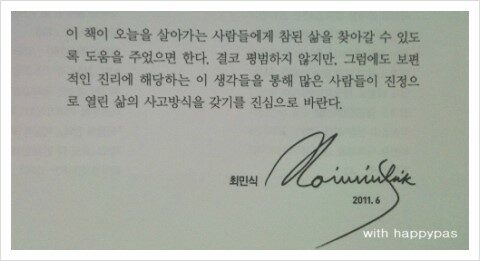 이 책이 오늘을 살아가는 사람들에게 참된 삶을 찾아갈 수 있도
록 도움을 주었으면 한다. 결코 평범하지 않지만, 그럼에도 보편
적인 진리에 해당하는 이 생각들을 통해 많은 사람들이 진정으
로 열린 삶의 사고방식을 갖기를 진심으로 바란다.
최민식
2011. 6
with happypas